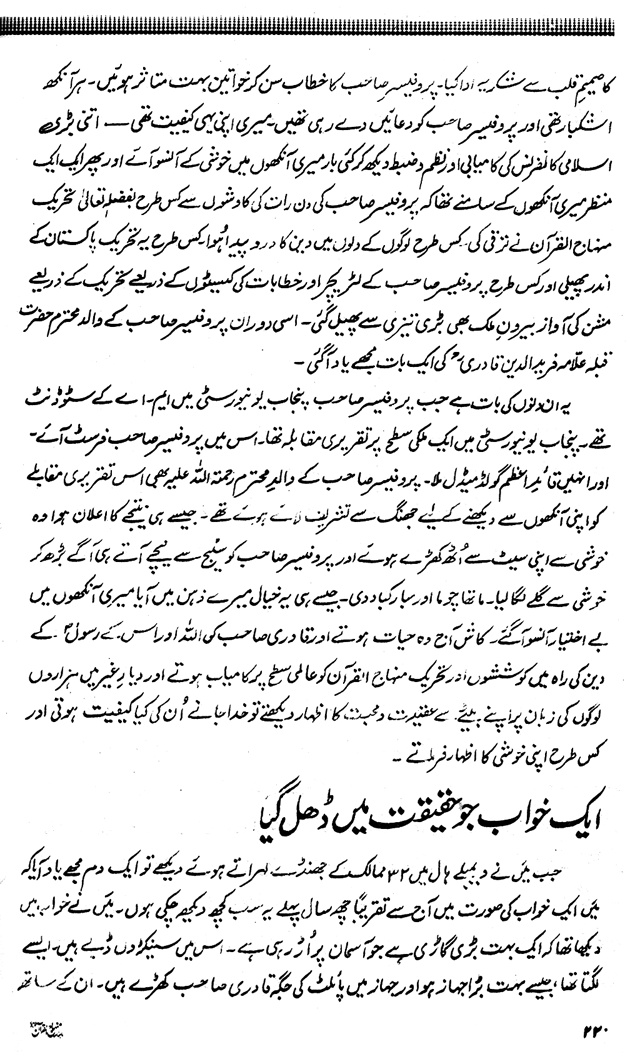 کا صمیمِ قلب سے شکریہ ادا کیا۔ پروفیسر صاحب کا خطاب سن کر خواتین بہت متاثر ہوئیں۔ ہر آنکھ
اشکبار تھی اور پروفیسر صاحب کو دعائیں دے رہی تھیں۔ میری اپنی یہی کیفیت تھی — اتنی بڑی
اسلامی کانفرنس کی کامیابی اور نظم و ضبط دیکھ کر کئی بار میری آنکھوں میں خوشی کے آنسو آئے اور پھر ایک ایک
منظر میری آنکھوں کے سامنے تھا کہ پروفیسر صاحب کی دن رات کی کاوشوں سے کس طرح بفضلہٖ تعالیٰ تحریک
منہاج القرآن نے ترقی کی۔ کس طرح لوگوں کے دلوں میں دین کا درد پیدا ہُوا۔ کس طرح یہ تحریک پاکستان کے
اندر پھیلی اور کس طرح پروفیسر صاحب کے لٹریچر اور خطابات کی کیسٹوں کے ذریعے تحریک کے ذریعے
مشن کی آواز بیرونِ ملک بھی بڑی تیزی سے پھیل گئی۔ اسی دوران پروفیسر صاحب کے والد محترم حضرت
قبلہ علامہ فرید الدین قادری رحؒ کی ایک بات مجھے یاد آگئی ۔
یہ ان دنوں کی بات ہے جب پروفیسر صاحب پنجاب یونیورسٹی میں ایم۔اے کے سٹوڈنٹ
تھے۔ پنجاب یونیورسٹی میں ایک ملکی سطح پر تقریری مقابلہ تھا۔ اس میں پروفیسر صاحب فرسٹ آئے۔
اور انہیں قائدِ اعظم گولڈ میڈل ملا۔ پروفیسر صاحب کے والدِ محترم رحمتہ اللہ علیہ بھی اس تقریری مقابلے
کو اپنی آنکھوں سے دیکھنے کے لیے جھنگ سے تشریف لائے ہوئے تھے۔ جیسے ہی نتیجے کا اعلان ہوا وہ
خوشی سے اپنی سیٹ سے اُٹھ کھڑے ہوئے اور پروفیسر صاحب کو سٹیج سے نیچے آتے ہی آگے بڑھ کر
خوشی سے گلے لگا لیا۔ ماتھا چوما اور مبارکباد دی۔ جیسے ہی یہ خیال میرے ذہن میں آیا میری آنکھوں میں
بے اختیار آنسو آگئے۔ کاش آج وہ حیات ہوتے اور قادری صاحب کی اللہ اور اس کے رسولؐ کے
دین کی راہ میں کوششوں اور تحریک منہاج القرآن کو عالمی سطح پر کامیاب ہوتے اور دیارِ غیر میں ہزاروں
لوگوں کی زبان پر اپنے بیٹے سے عقیدت و محبت کا اظہار دیکھتے تو خدا جانے اُن کی کیا کیفیت ہوتی اور
کس طرح اپنی خوشی کا اظہار فرماتے ۔
ایک خواب جو حقیقت میں ڈھل گیا
جب میں نے ویمبلے ہال میں ۳۲ ممالک کے جھنڈے لہراتے ہوئے دیکھے تو ایک دم مجھے یاد آیا کہ
میں ایک خواب کی صورت میں آج سے تقریباً چھ سال پہلے یہ سب کچھ دیکھ چکی ہوں۔ میں نے خواب میں
دیکھا تھا کہ ایک بہت بڑی گاڑی ہے جو آسمان پر اُڑ رہی ہے۔ اس میں سینکڑوں ڈبے ہیں۔ ایسے
لگتا تھا، جیسے بہت بڑا جہاز ہو اور جہاز میں پائلٹ کی جگہ قادری صاحب کھڑے ہیں۔ ان کے ساتھ
۲۲۰